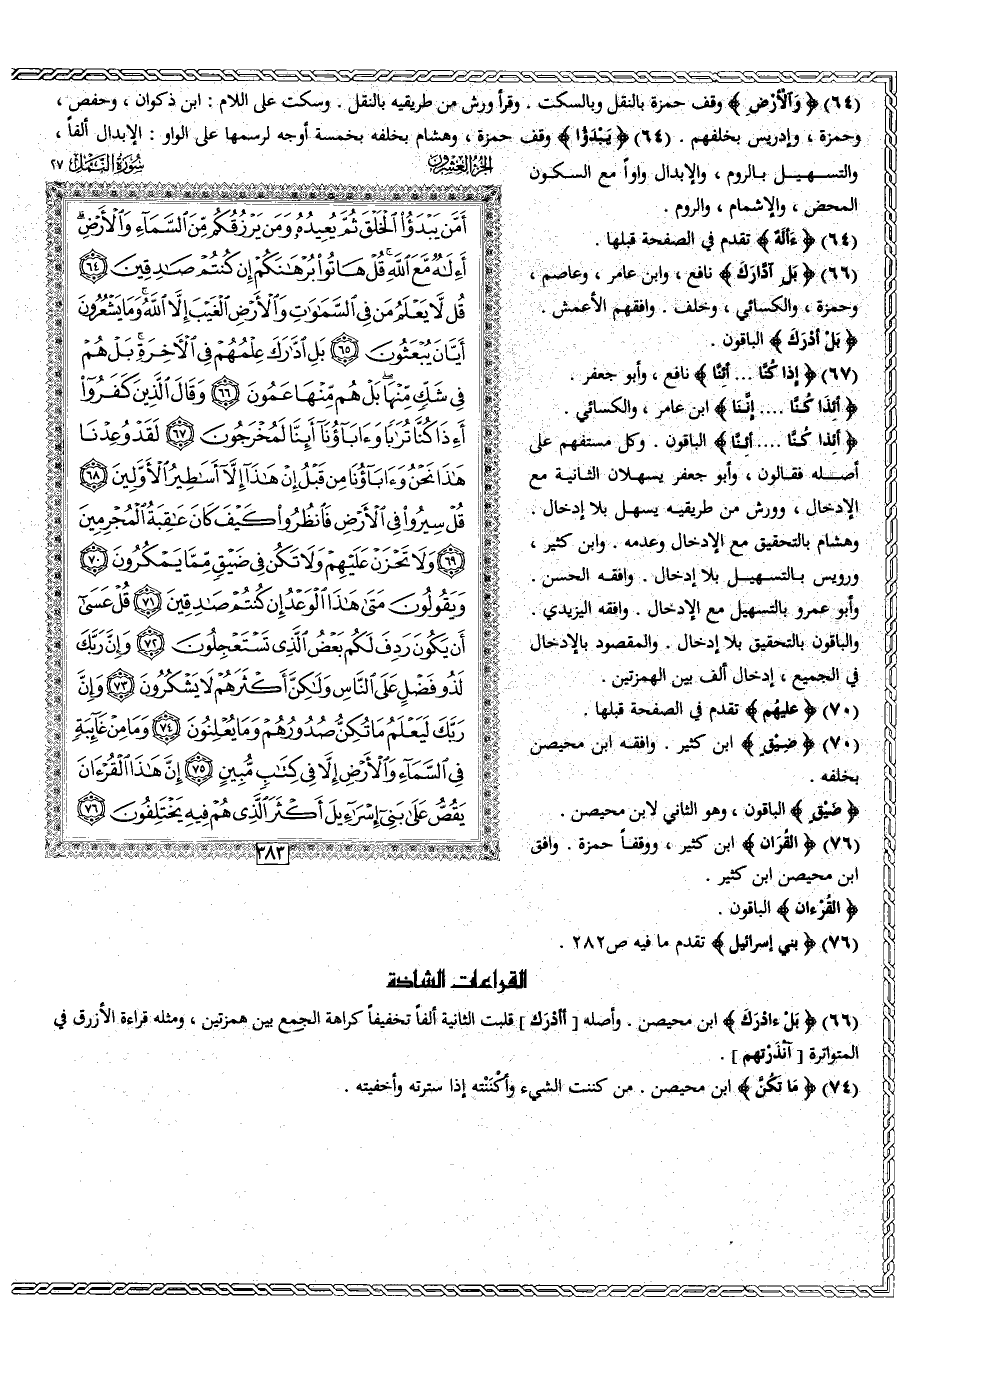 (٦٤) ﴿ وَالْأَرْضِ ﴾ وقف حمزة بالنقل وبالسكت . وقرأ ورش من طريقيه بالنقل . وسكت على اللام : ابن ذكوان ، وحفص ،
وحمزة ، وإدريس بخلفهم . (٦٤) ﴿ يَبْدَؤُا ﴾ وقف حمزة ، وهشام بخلفه بخمسة أوجه لرسمها على الواو : الإبدال ألفاً ،
والتسهيل بالروم ، والإبدال واواً مع السكون
المحض ، والإشمام ، والروم .
(٦٤) ﴿ ءَالَهٌ ﴾ تقدم في الصفحة قبلها .
(٦٦) ﴿ بَلِ آدَّارَكَ ﴾ نافع ، وابن عامر ، وعاصم ،
وحمزة ، والكسائي ، وخلف . وافقهم الأعمش .
﴿ بَلْ أَدْرَكَ ﴾ الباقون .
(٦٧) ﴿ إِذَا كُنَّا ... أَئِنَّا ﴾ نافع ، وأبو جعفر .
﴿ أَئِذَا كُنَّا .... إِنَّنَا ﴾ ابن عامر ، والكسائي .
﴿ أَئِذَا كُنَّا .... أَئِنَّا ﴾ الباقون . وكل مستفهم على
أصله فقالون ، وأبو جعفر يسهلان الثانية مع
الإدخال ، وورش من طريقيه يسهل بلا إدخال .
وهشام بالتحقيق مع الإدخال وعدمه . وابن كثير ،
ورويس بالتسهيل بلا إدخال . وافقه الحسن .
وأبو عمرو بالتسهيل مع الإدخال . وافقه اليزيدي .
والباقون بالتحقيق بلا إدخال . والمقصود بالإدخال
في الجميع ، إدخال ألف بين الهمزتين .
(٧٠) ﴿ عليهُم ﴾ تقدم في الصفحة قبلها .
(٧٠) ﴿ ضِيْقٍ ﴾ ابن كثير . وافقه ابن محيصن
بخلفه .
﴿ ضَيْقٍ ﴾ الباقون ، وهو الثاني لابن محيصن .
(٧٦) ﴿ القُرَان ﴾ ابن كثير ، ووقفاً حمزة . وافق
ابن محيصن ابن كثير .
﴿ القُرْءان ﴾ الباقون .
(٧٦) ﴿ بني إسرائيل ﴾ تقدم ما فيه ص٢٨٢ .
الجزء العشرون
سورة النمل ٢٧
أَمَّن يَبْدَؤُا۟ ٱلْخَلْقَ ثُمَّ يُعِيدُهُۥ وَمَن يَرْزُقُكُم مِّنَ ٱلسَّمَآءِ وَٱلْأَرْضِ ۗ
أَءِلَٰهٌ مَّعَ ٱللَّهِ ۚ قُلْ هَاتُوا۟ بُرْهَٰنَكُمْ إِن كُنتُمْ صَٰدِقِينَ ٦٤
قُل لَّا يَعْلَمُ مَن فِى ٱلسَّمَٰوَٰتِ وَٱلْأَرْضِ ٱلْغَيْبَ إِلَّا ٱللَّهُ ۚ وَمَا يَشْعُرُونَ
أَيَّانَ يُبْعَثُونَ ٦٥ بَلِ ٱدَّٰرَكَ عِلْمُهُمْ فِى ٱلْءَاخِرَةِ ۚ بَلْ هُمْ
فِى شَكٍّ مِّنْهَا ۖ بَلْ هُم مِّنْهَا عَمُونَ ٦٦ وَقَالَ ٱلَّذِينَ كَفَرُوٓا۟
أَءِذَا كُنَّا تُرَٰبًا وَءَابَآؤُنَآ أَئِنَّا لَمُخْرَجُونَ ٦٧ لَقَدْ وُعِدْنَا
هَٰذَا نَحْنُ وَءَابَآؤُنَا مِن قَبْلُ إِنْ هَٰذَآ إِلَّآ أَسَٰطِيرُ ٱلْأَوَّلِينَ ٦٨
قُلْ سِيرُوا۟ فِى ٱلْأَرْضِ فَٱنظُرُوا۟ كَيْفَ كَانَ عَٰقِبَةُ ٱلْمُجْرِمِينَ
٦٩ وَلَا تَحْزَنْ عَلَيْهِمْ وَلَا تَكُن فِى ضَيْقٍ مِّمَّا يَمْكُرُونَ ٧٠
وَيَقُولُونَ مَتَىٰ هَٰذَا ٱلْوَعْدُ إِن كُنتُمْ صَٰدِقِينَ ٧١ قُلْ عَسَىٰٓ
أَن يَكُونَ رَدِفَ لَكُم بَعْضُ ٱلَّذِى تَسْتَعْجِلُونَ ٧٢ وَإِنَّ رَبَّكَ
لَذُو فَضْلٍ عَلَى ٱلنَّاسِ وَلَٰكِنَّ أَكْثَرَهُمْ لَا يَشْكُرُونَ ٧٣ وَإِنَّ
رَبَّكَ لَيَعْلَمُ مَا تُكِنُّ صُدُورُهُمْ وَمَا يُعْلِنُونَ ٧٤ وَمَا مِنْ غَآئِبَةٍ
فِى ٱلسَّمَآءِ وَٱلْأَرْضِ إِلَّا فِى كِتَٰبٍ مُّبِينٍ ٧٥ إِنَّ هَٰذَا ٱلْقُرْءَانَ
يَقُصُّ عَلَىٰ بَنِىٓ إِسْرَٰٓءِيلَ أَكْثَرَ ٱلَّذِى هُمْ فِيهِ يَخْتَلِفُونَ ٧٦
٣٨٣
القراءات الشاذة
(٦٦) ﴿ بَلْ ءادْرَكَ ﴾ ابن محيصن . وأصله [ أأدْرَك ] قلبت الثانية ألفاً تخفيفاً كراهة الجمع بين همزتين ، ومثله قراءة الأزرق في
المتواترة [ آنْذَرْتهم ] .
(٧٤) ﴿ مَا تَكُنُّ ﴾ ابن محيصن . من كننت الشيء وأكْنَنْته إذا سترته وأخفيته .